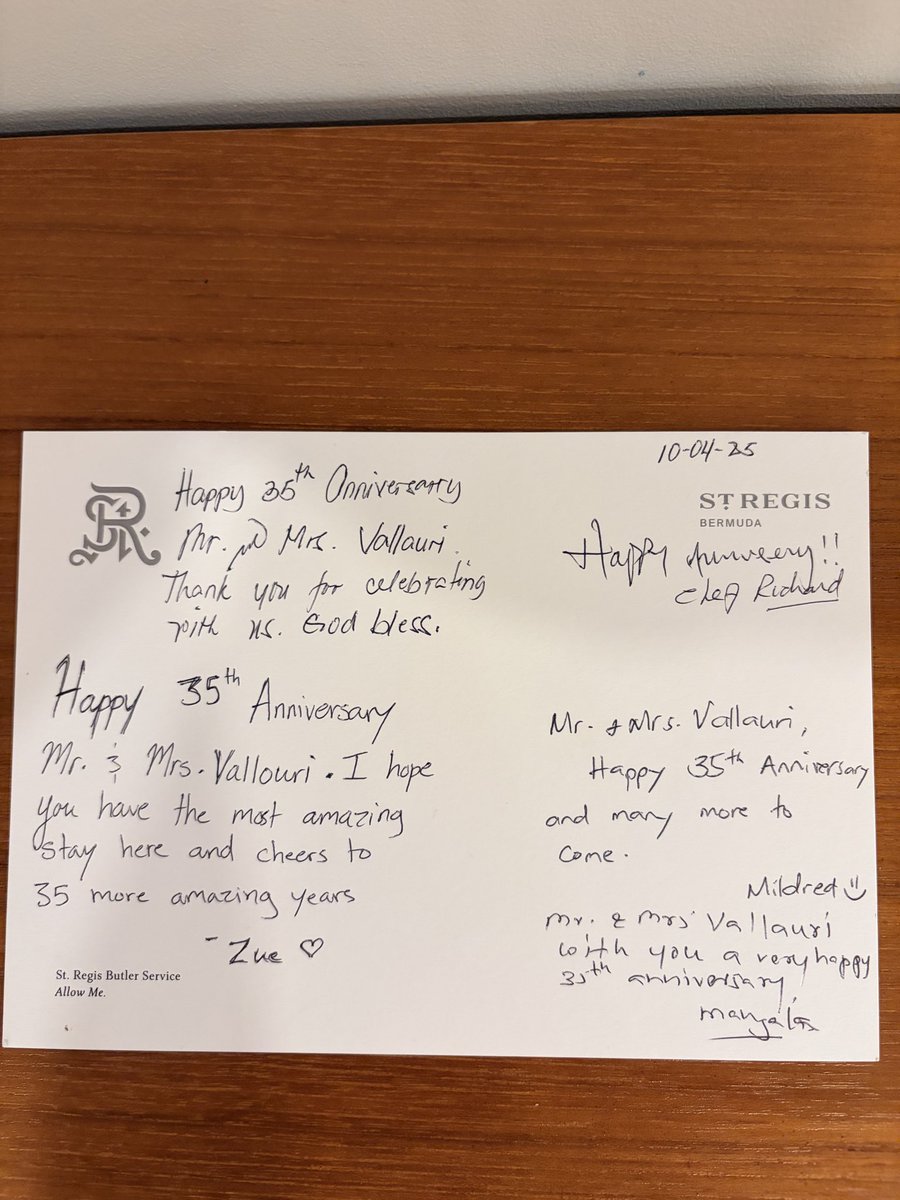 10-04-25
ST REGIS
BERMUDA
Happy 35th Anniversary
Mr. Mrs. Vallauri.
Thank you for celebrating
with us. God bless.
Happy !!
Chef Richard
Happy 35th Anniversary
Mr. & Mrs. Vallouri. I hope
you have the most amazing
stay here and cheers to
35 more amazing years
- Zue ♡
Mr. & Mrs. Vallauri,
Happy 35th Anniversary
and many more to
come.
Mildred
Mr. & Mrs Vallauri
with you a very happy
35th anniversary,
St. Regis Butler Service
Allow Me.